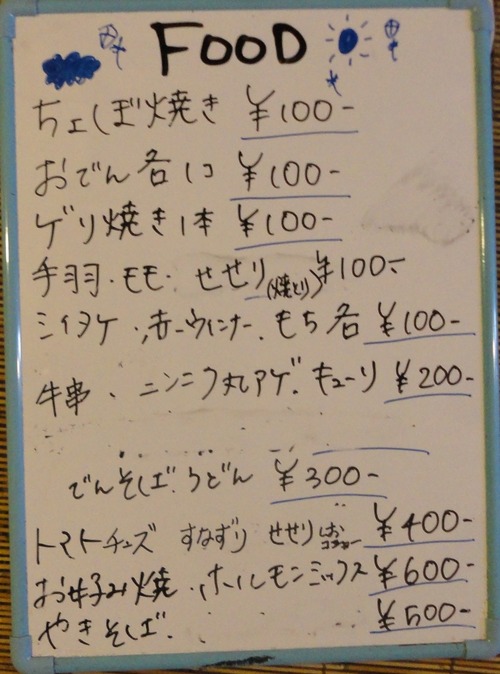 FOOD
ちょしぼ焼き ¥100-
おでん各1コ ¥100-
ゲソ焼き1本 ¥100-
手羽・モモ・せせり(焼とり) ¥100-
シイタケ・赤ウィンナー・もち各 ¥100-
牛串・ニンニク丸アゲ・キューリ ¥200-
でんそば・うどん ¥300-
トマトチーズ すなずり せせりしおコショー ¥400-
お好み焼・ホルモンミックス ¥600-
やきそば・ ¥500-